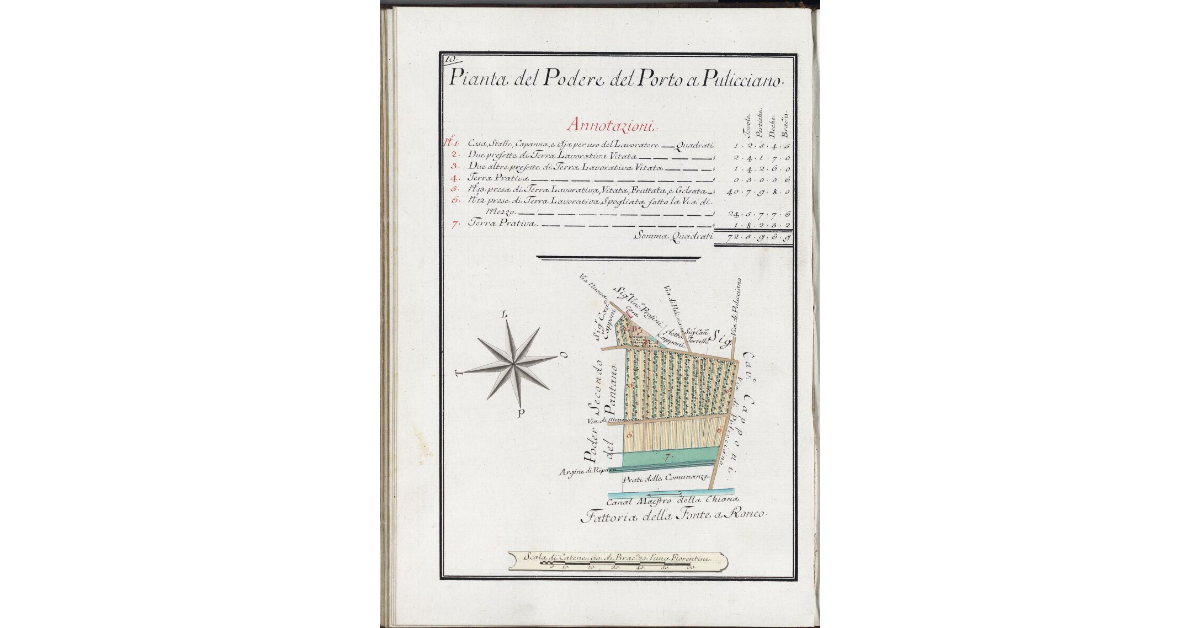 10
Pianta del Podere del Porto a Pulicciano.
Annotazioni.
Tavole. Pertiche. Deche. Braccia.
N.º 1. Casa, Stalle, Capanna, e Aja per uso del Lavoratore Quadrati 1. 2. 5. 4. 5
2. Due presette di Terra Lavorativa Vitata 2. 4. 1. 7. 0
3. Due altre presette di Terra Lavorativa Vitata 1. 4. 2. 6. 0
4. Terra Prativa 0. 3. 0. 0. 6
5. N.º 19. prese di Terra Lavorativa, Vitata, Fruttata, e Gelsata 40. 7. 9. 8. 0
6. N.º 12 prese di Terra Lavorativa Spogliata sotto la Via di
Mezzo. 24. 5. 7. 7. 6
7. Terra Prativa. 1. 8. 2. 3. 2
Somma Quadrati 72. 5. 9. 6. 9
L
O
T
P
Via Nuova
Sig.r Vinc.o
Via di Pulicciano
Sig.r Cav.r
Capponi
Sig.r Cav.r Capponi
Via di Pulicciano
Poder Secondo
del Pantano
Via di Mezzo
6.
6.
7.
Argine di Riparo
Prati delle Comunanze
Canal Maestro della Chiana
Fattoria della Fonte a Ronco.
Scala di Catene di Braccia Fiorentine